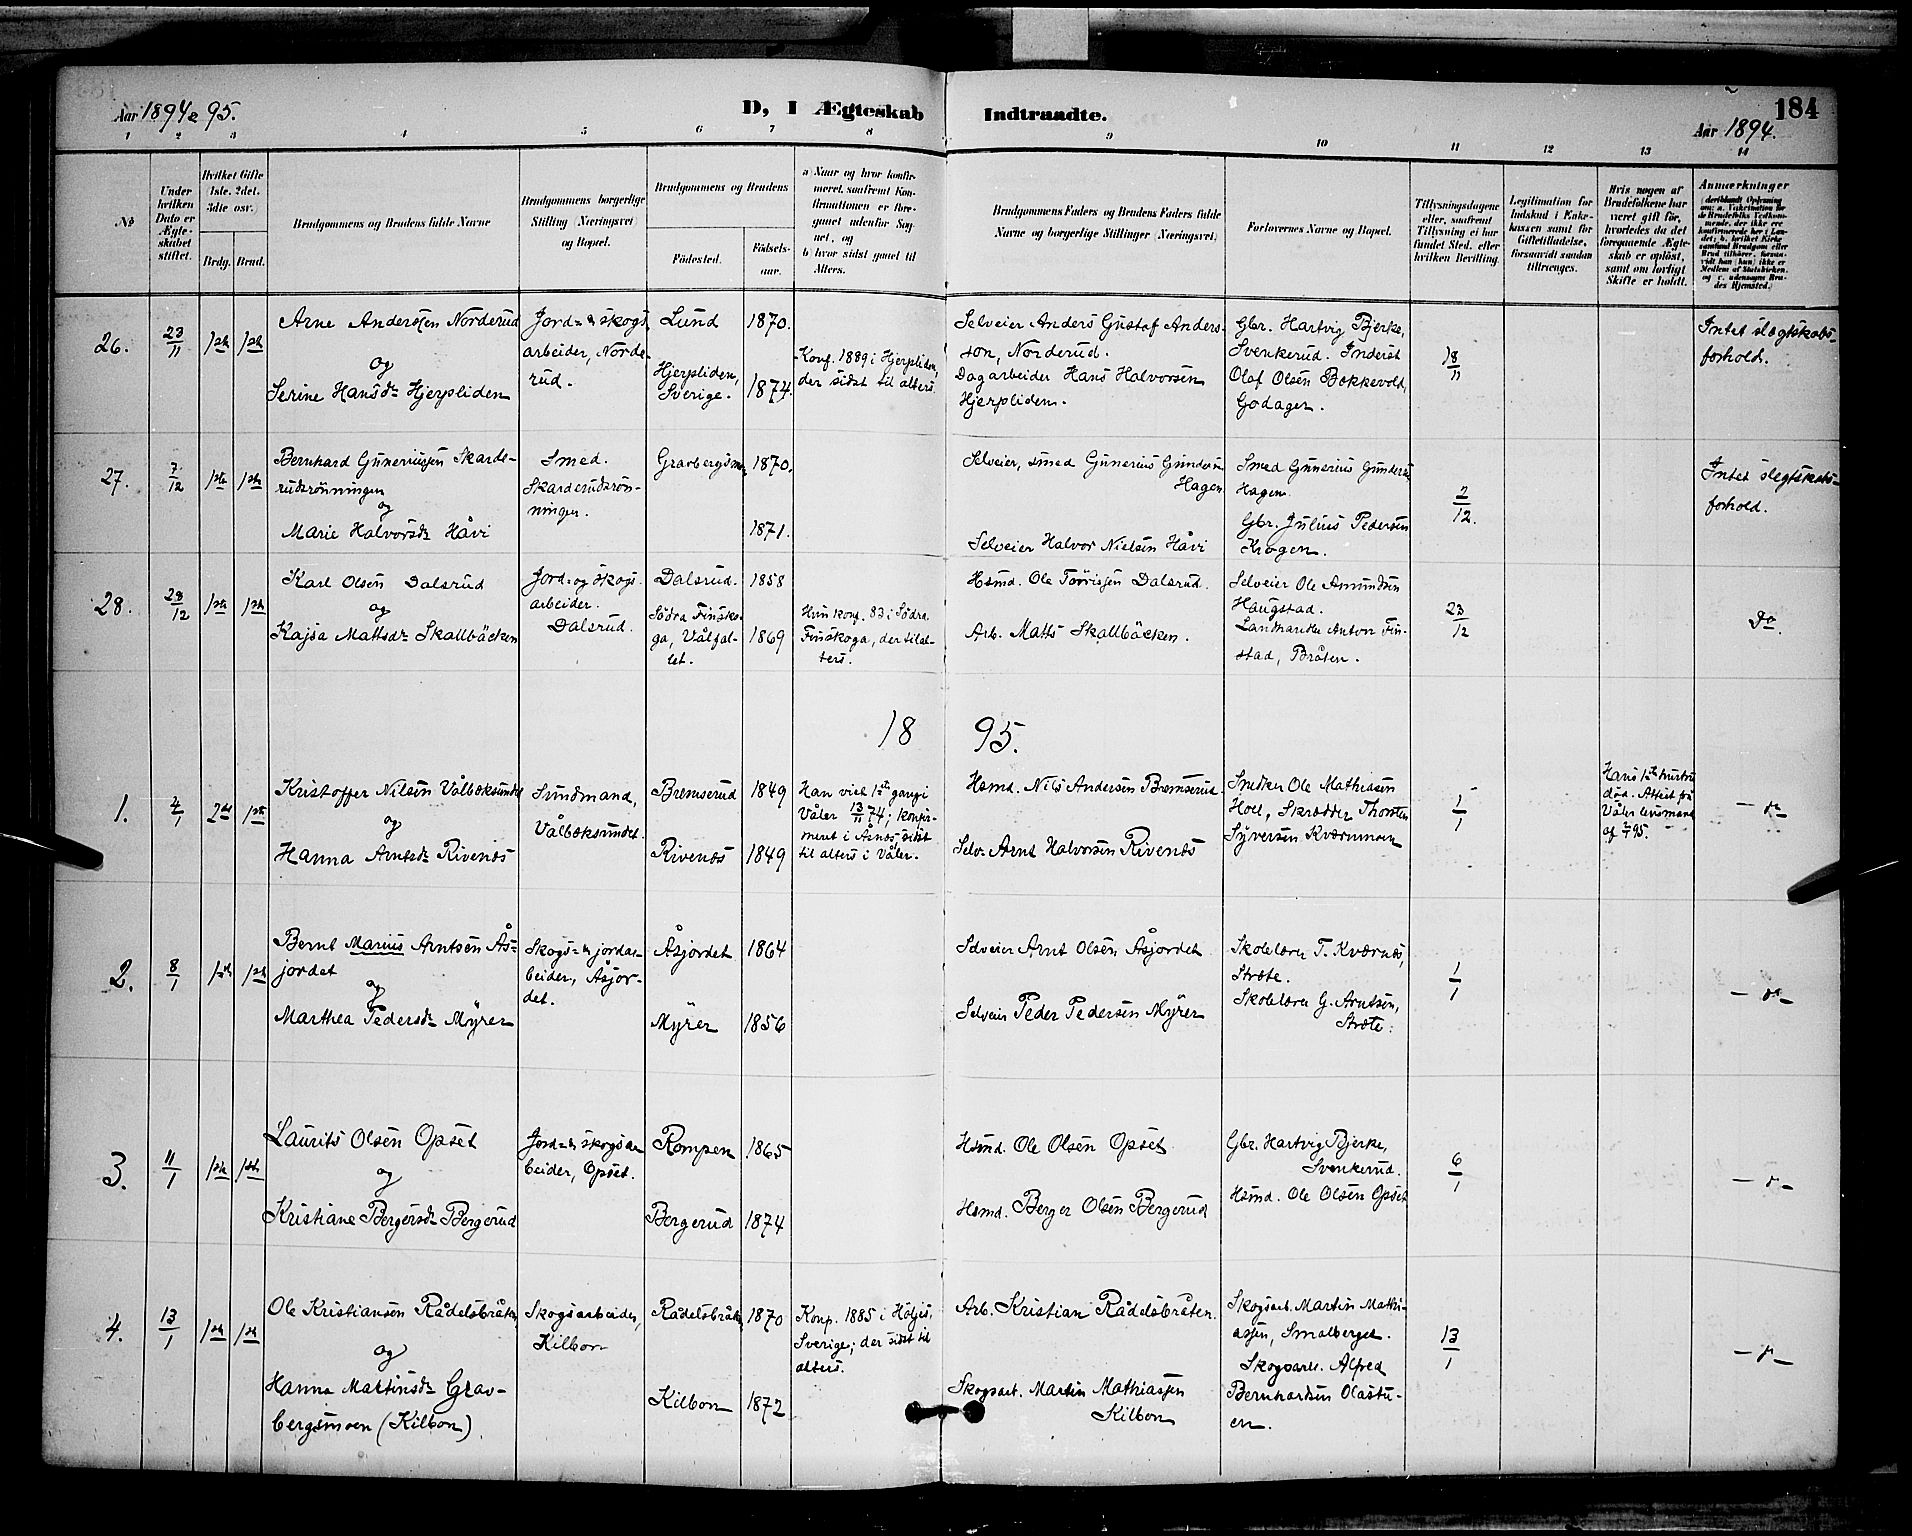 Aar 1894 & 95.
D, I Ægteskab Indtraadte.
184
Aar 1894.
1 2 3 4 5 6 7 8 9 10 11 12 13 14
No
Under hvilken Dato er Ægteskabet stiftet.
Hvilket Gifte (1ste, 2det, 3die osv.)
Brdg. Brud.
Brudgommens og Brudens fulde Navne
Brudgommens borgerlige Stilling (Næringsvei) og Bopæl.
Brudgommens og Brudens
Fødested.
Fødselsaar.
a) Naar og hvor konfirmeret, saafremt Konfirmationen er foregaaet udenfor Sognet, og
b) hvor sidst gaaet til Alters.
Brudgommens Faders og Brudens Faders fulde Navne og borgerlige Stillinger (Næringsvei)
Forlovernes Navne og Bopæl.
Tillysningsdagene eller, saafremt Tillysning ei har fundet Sted, efter hvilken Bevilling.
Legitimation for Indskud i Enkekassen samt for Giftetilladelse, forsaavidt saadan tiltrænges.
Hvis nogen af Brudefolkene har været gift før, hvorledes da det foregaaende Ægteskab er opløst, samt om lovligt Skifte er holdt.
Anmærkninger
26. 23/11 1ste 1ste
Arne Andersen Norderud
og
Serine Hansdr Hjerpliden
Jord- & skogsarbeider, Norderud.
Lund 1870.
Hjerpliden, Sverige. 1874.
Konf. 1889 i Hjerpliden, der sidst til alters.
Selveier Anders Gustaf Andersson, Norderud.
Dagarbeider Hans Halvorsen Hjerpliden.
Gbr. Hartvig Bjerke, Svenkerud. Inderst
Olaf Olsen Bekkevold, Godager.
18/11
Intet slægtskabsforhold.
27. 7/12 1ste 1ste
Bernhard Guneriussen Skarderudrönningen
og
Marie Halvorsdr Håvi
Smed. Skarderudrönningen.
Gravbergsm. 1870.
1871.
Selveier, smed Gunerius Gundersen Hagen
Selveier Halvor Nielsen Håvi
Smed Gunerius Gundersen Hagen.
Gbr. Julius Pedersen Krogen.
2/12.
Intet slegtskabsforhold.
28. 28/12 1ste 1ste
Karl Olsen Dalsrud
og
Kajsa Mattsdr Skallbäcken
Jord- og skogsarbeider. Dalsrud.
Dalsrud. 1858
Södra Finskoga, Vålfallet. 1869
Hun konf. 83 i Södra Finskoga, der til alters.
Hsmd. Ole Torrissen Dalsrud.
Arb. Matts Skallbäcken.
Selveier Ole Amundsen Haugstad.
Landhandler Anton Finstad, Bråten.
23/12
Do.
1895.
1. 4/1 2det 1ste
Kristoffer Nilsen Vålbæksundet
og
Hanna Arntsdr Rivenæs
Sundmand, Vålbæksundet.
Bremserud 1849
Rivenæs 1849
Han viet 1ste gang i Våler 13/11 74; konfirmeret i Åsnes, sidst til alters i Våler.
Hsmd. Nils Andersen Bremserud.
Selv. Arnt Halvorsen Rivenæs
Snedker Ole Mathiasen Hoel, Skrædder Thorsten Syversen Kværnmoen
1/1
Hans 1ste hustru död. Attest fra Våler lensmand af 2/1 95.
- do -
2. 8/1 1ste 1ste
Bernt Marius Arntsen Åsjordet
og
Marthea Pedersdr Myrer
Skogs- & jordarbeider, Åsjordet.
Åsjordet 1864
Myrer 1856
Selveier Arnt Olsen Åsjordet
Selveier Peder Pedersen Myrer
Skolelærer T. Kværnæs, Stræte.
Skolelærer G. Arntsen, Stræte.
1/1
- do -
3. 11/1 1ste 1ste
Laurits Olsen Opset
og
Kristiane Bergersdr Bergerud
Jord- & skogsarbeider, Opset.
Rompen 1865
Bergerud 1874
Hsmd. Ole Olsen Opset
Hsmd. Berger Olsen Bergerud
Gbr. Hartvig Bjerke, Svenkerud.
Hsmd. Ole Olsen Opset
6/1
- do -
4. 13/1 1ste 1ste
Ole Kristiansen Rådelsbråten
og
Hanna Martinsdr Gravbergsmoen (Kilbon)
Skogsarbeider, Kilbon
Rådelsbråten 1870
Kilbon 1872
Konf. 1885 i Höljes, Sverige; der sidst til alters.
Arb. Kristian Rådelsbråten.
Skogsarb. Martin Mathiassen Kilbon
Skogsarb. Martin Mathiassen, Smalberget.
Skogsarb. Alfred Bernhardsen Olastuen.
13/1
- do -